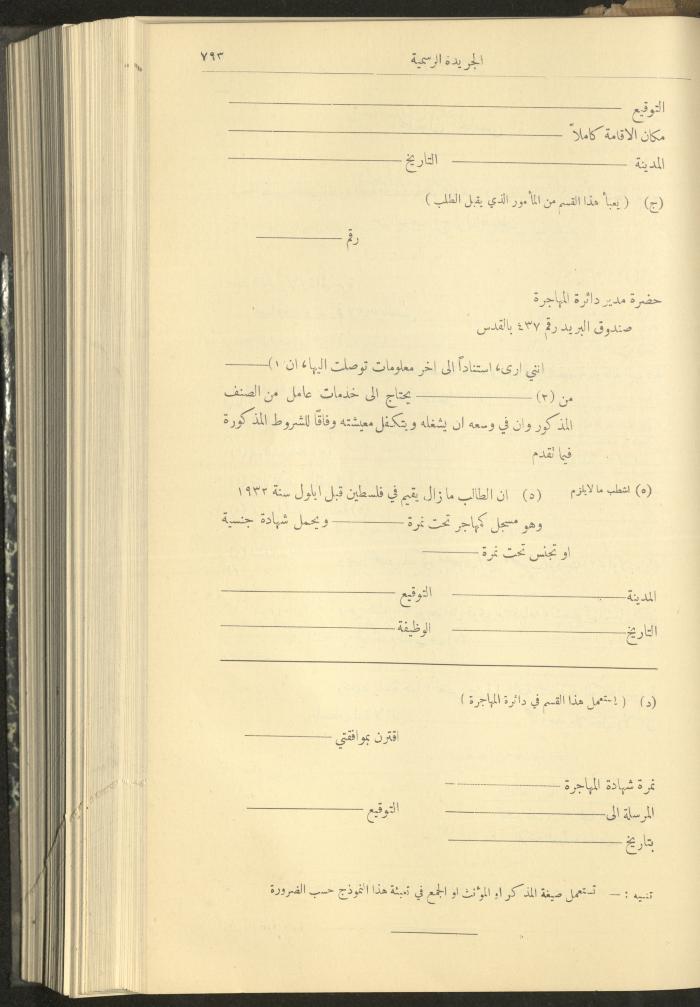 الجريدة الرسمية ٧٩٣
التوقيع
مكان الاقامة كاملاً
المدينة التاريخ
(ج) ( يعبأ هذا القسم من المأمور الذي يقبل الطلب )
رقم
حضرة مدير دائرة المهاجرة
صندوق البريد رقم ٤٣٧ بالقدس
انني ارى، استناداً الى اخر معلومات توصلت اليها، ان ١)
من (٢) يحتاج الى خدمات عامل من الصنف
المذكور وان في وسعه ان يشغله ويتكفل معيشته وفاقًا للشروط المذكورة
فيما تقدم
(٥) اشطب ما لايلزم (٥) ان الطالب ما زال يقيم في فلسطين قبل ايلول سنة ١٩٣٢
وهو مسجل كمهاجر تحت نمرة ويحمل شهادة جنسية
او تجنس تحت نمرة
المدينة التوقيع
التاريخ الوظيفة
(د) ( يستعمل هذا القسم في دائرة المهاجرة )
اقترن بموافقتي
نمرة شهادة المهاجرة
المرسلة الى التوقيع
بتاريخ
تنبيه : — تستعمل صيغة المذكر او المؤنث او الجمع في تعبئة هذا النموذج حسب الضرورة